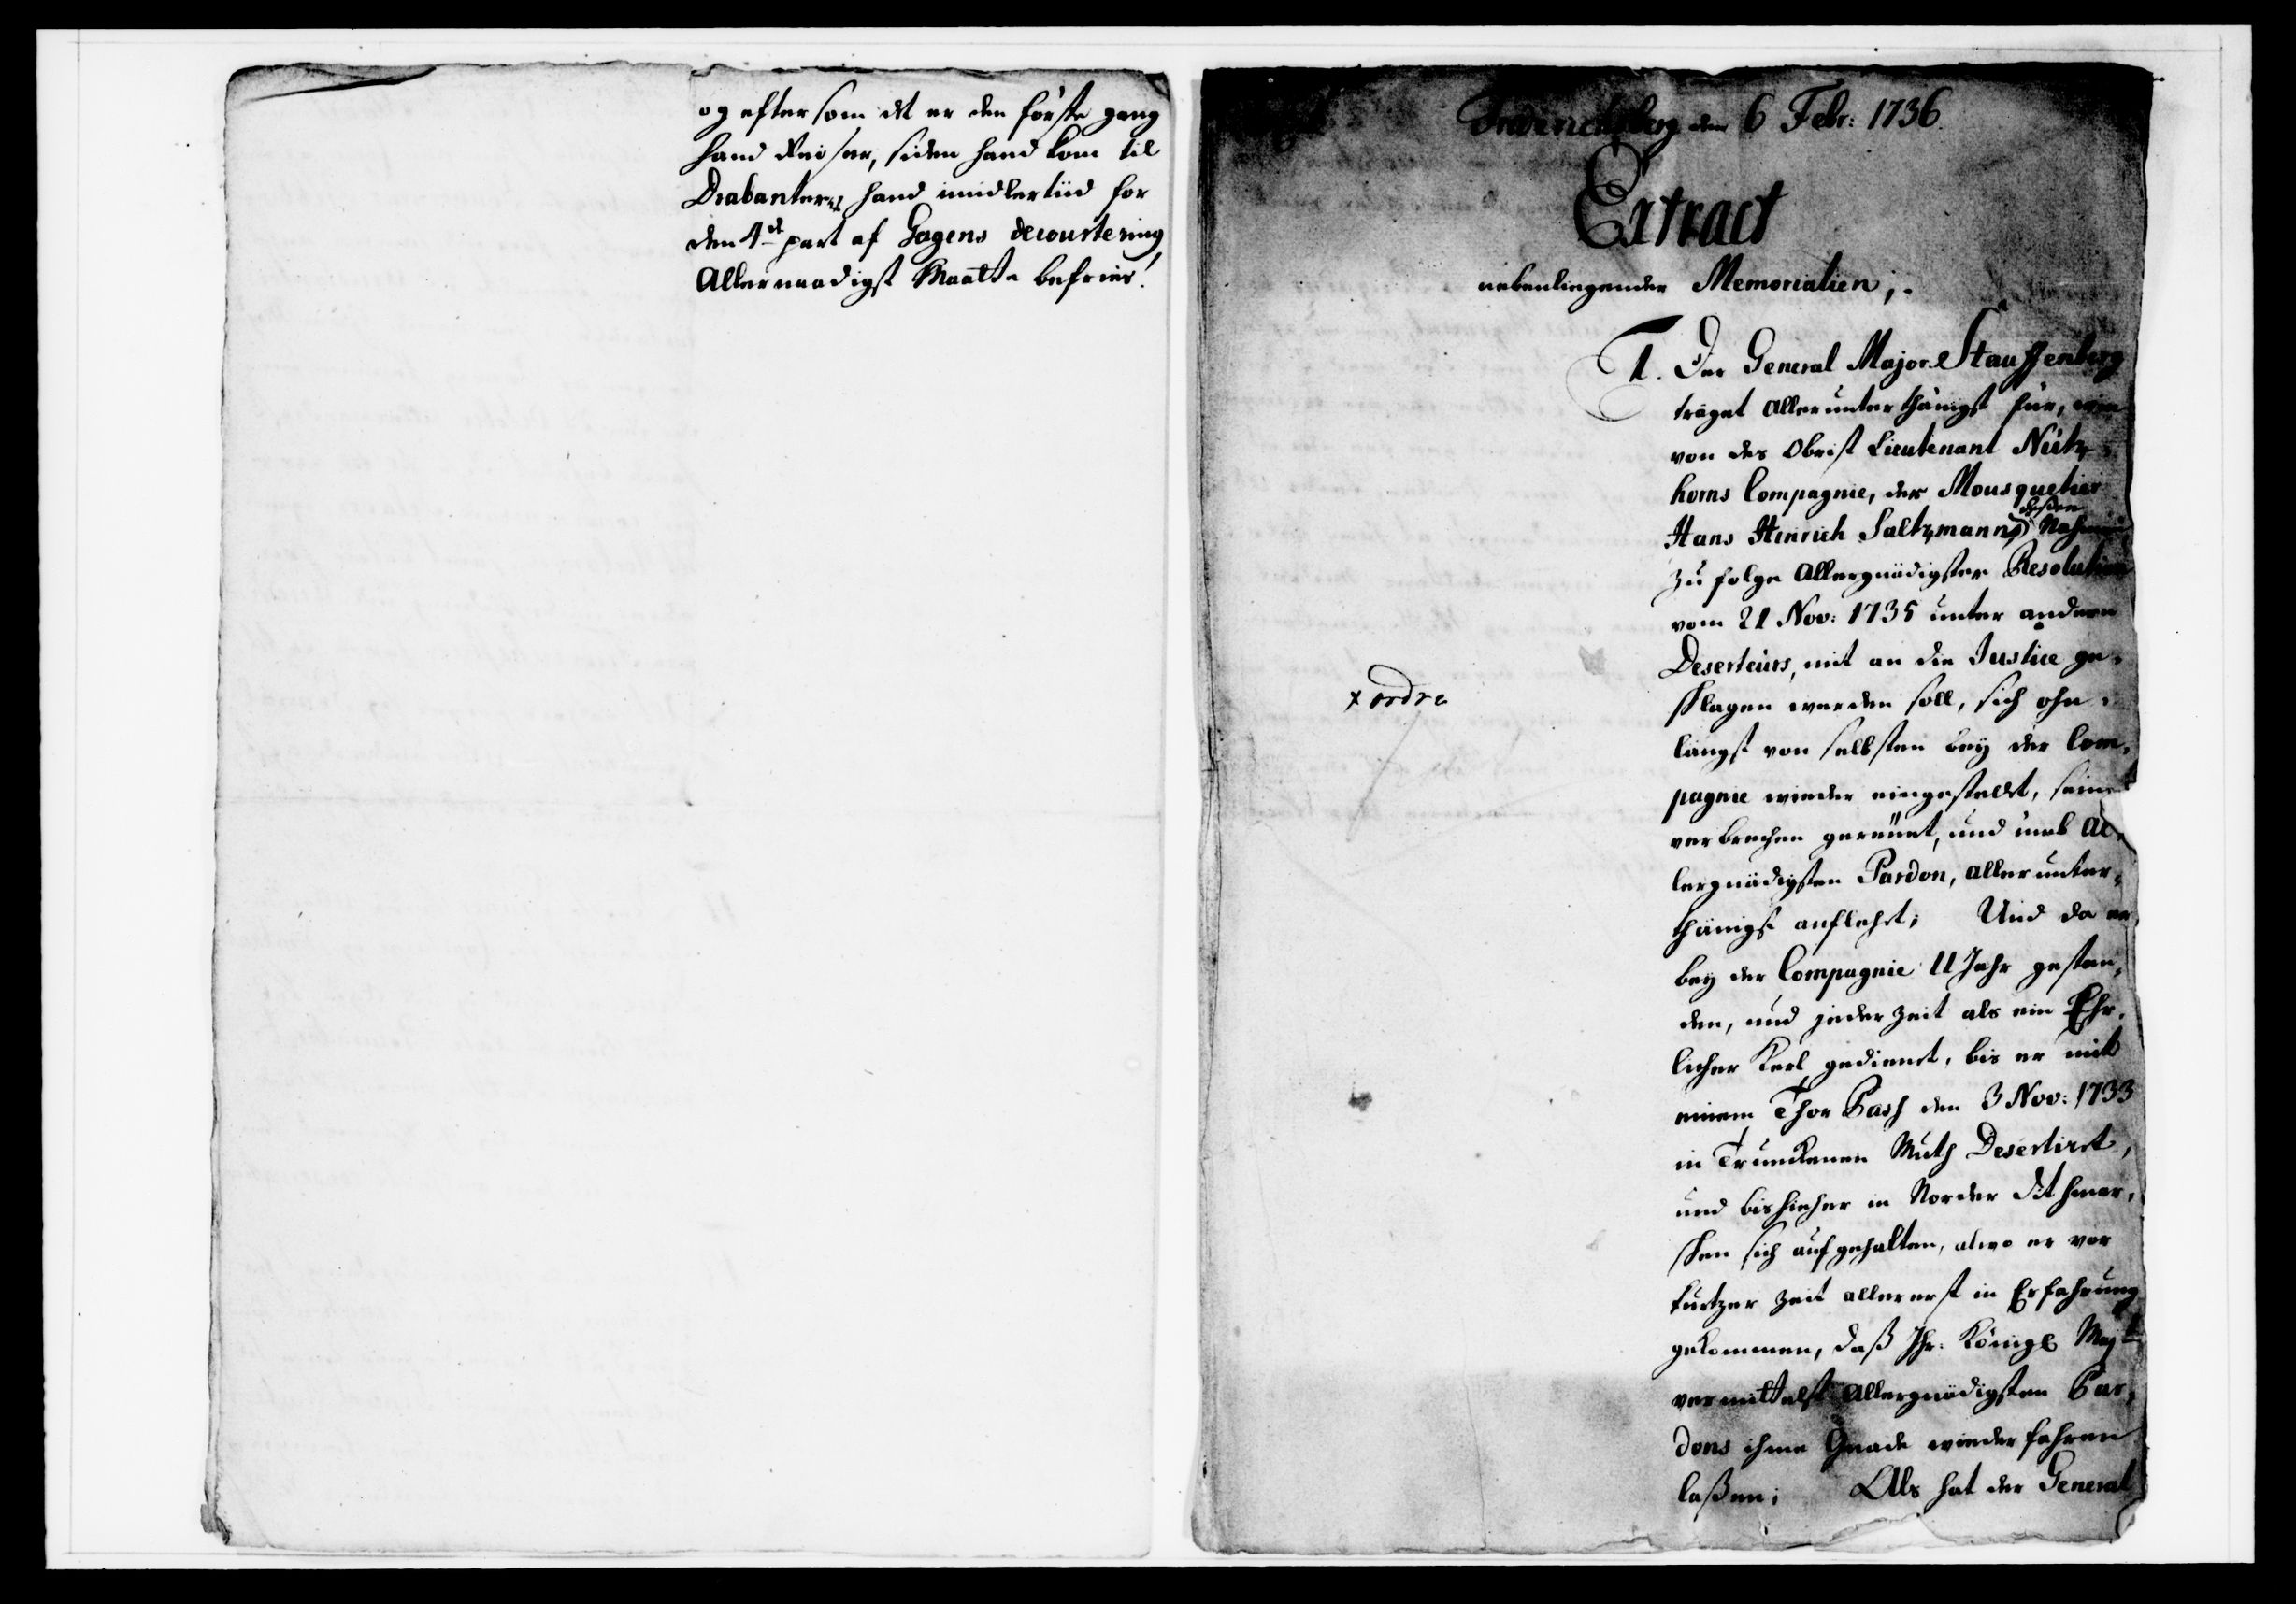 og eftersom det er den förste gang
hand Reiser, siden hand kom til
Drabanterne hand imidlertiid for
den 4de part af Gagens decourtering
Allernaadigst Maatte befries!
Friderichsberg den 6 Febr: 1736.
Extract
nebenliegender Memorialien,.
1. Der General Major Stauffenberg
träget allerunterthänigst für, wie
von des Obrist Lieutenant Nütz-
horns Compagnie, der Mousquetier
Hans Hinrich Saltzmann, deßen Nahme
zu folge Allergnädigster Resolution
vom 21 Nov: 1735 unter andern
Deserteurs, mit an die Justice ge-
schlagen werden soll, sich ohn-
längst von selbsten bey der Com-
pagnie wieder eingestellt, seine
verbrechen gereüet, und umb al-
lergnädigsten Pardon, allerunter-
thänigst anflehet; Und da er
bey der Compagnie 11 Jahr gestan-
den, und jederzeit als ein Ehr-
licher Kerl gedienet, bis er mit
einem Thor Pass den 3 Nov: 1733
in Trunckenen Muth Desertiret,
und bishieher in Norder Dithmar-
schen sich aufgehalten, alwo er vor
kurtzer Zeit allererst in Erfahrung
gekommen, daß Ihr: Königl Maytt
vermittelst Allergnädigsten Par-
dons ihme Gnade wiederfahren
laßen; Als hat der General
x ordre